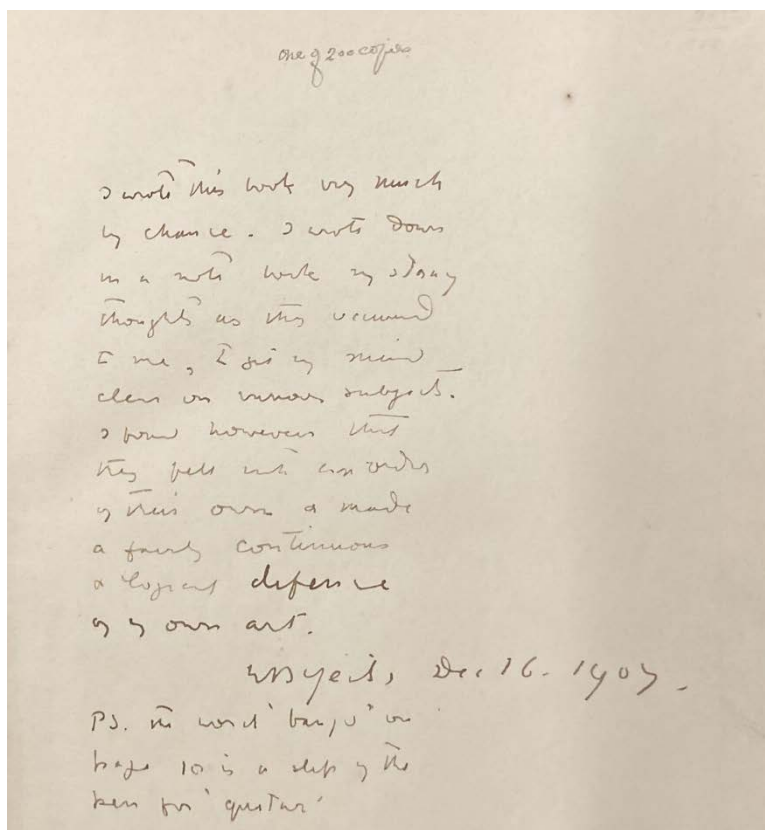 one of 200 copies
I wrote this book very much
by chance. I wrote down
in a note book my stray
thoughts as they occurred
to me, to get my mind
clear on various subjects.
I found however that
they fell into an order
of their own & made
a fairly continuous
& logical defence
of my own art.
WBYeats, Dec 16. 1907.
PS. the word 'banjo' on
page 10 is a slip of the
pen for 'guitar'